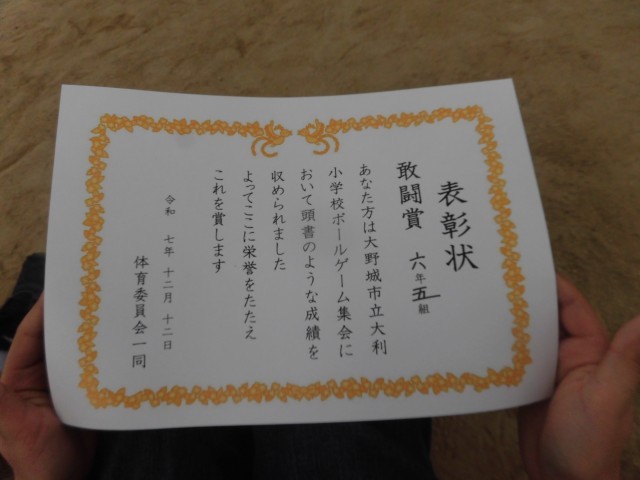 表彰状
敢闘賞 六年五組
あなた方は大野城市立大利
小学校ボールゲーム集会に
おいて頭書のような成績を
収められました
よってここに栄誉をたたえ
これを賞します
令和 七年 十二月 十二日
体育委員会一同